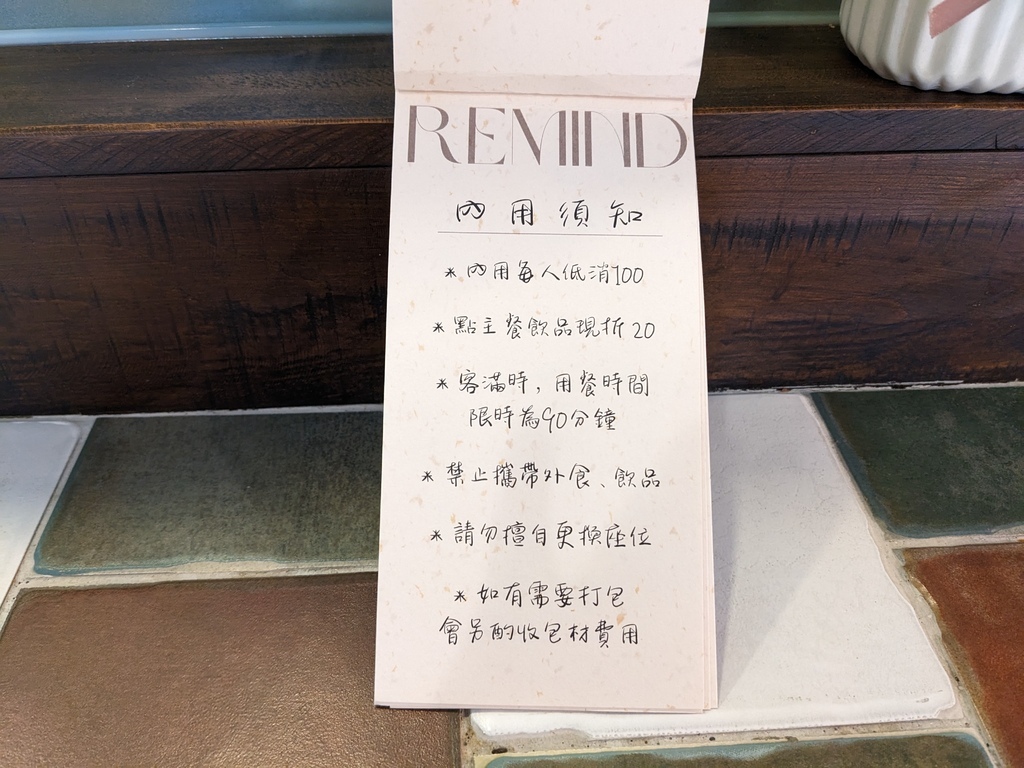 REMIND
內用須知
* 內用每人低消100
* 點主餐飲品現折20
* 客滿時,用餐時間
限時為90分鐘
* 禁止攜帶外食、飲品
* 請勿擅自更換座位
* 如有需要打包
會另酌收包材費用